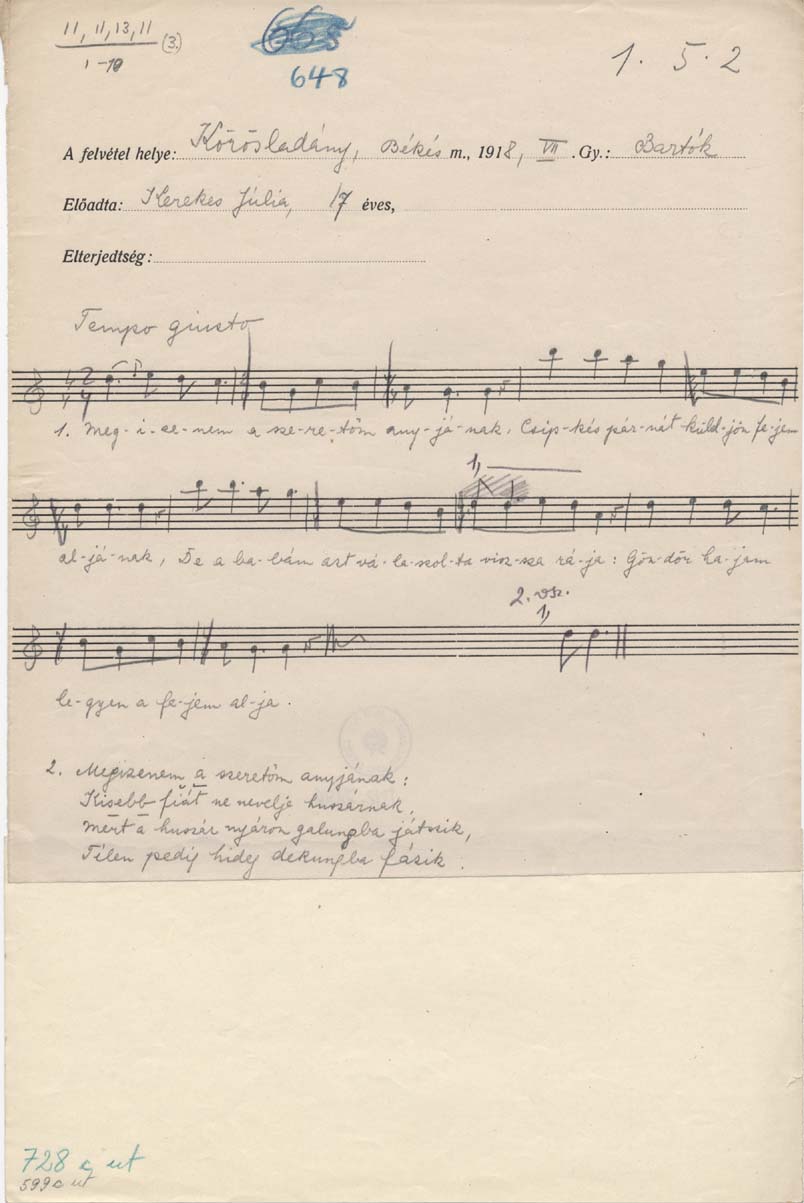 11, 11, 13, 11 (3.)
1-10
648
1. 5. 2
A felvétel helye: Körösladány, Békés m., 1918, VII. Gy.: Bartók
Előadta: Kerekes Júlia, 17 éves,
Elterjedtség:
Tempo giusto
2
4
1. Meg-i-ze-nem a sze-re-tőm any-já-nak, Csip-kés pár-nát küld-jön fe-jem
1,
al-já-nak, De a ba-bám azt vá-la-szol-ta visz-sza rá-ja: Gön-dör ha-jam
2. vsz.
1,
le-gyen a fe-jem al-ja.
2. Megizenem a szeretőm anyjának:
Kisebb fiát ne nevelje huszárnak,
Mert a huszár nyáron galungba játszik,
Télen pedig hideg dekungba fázik.
728 ut
599 ut